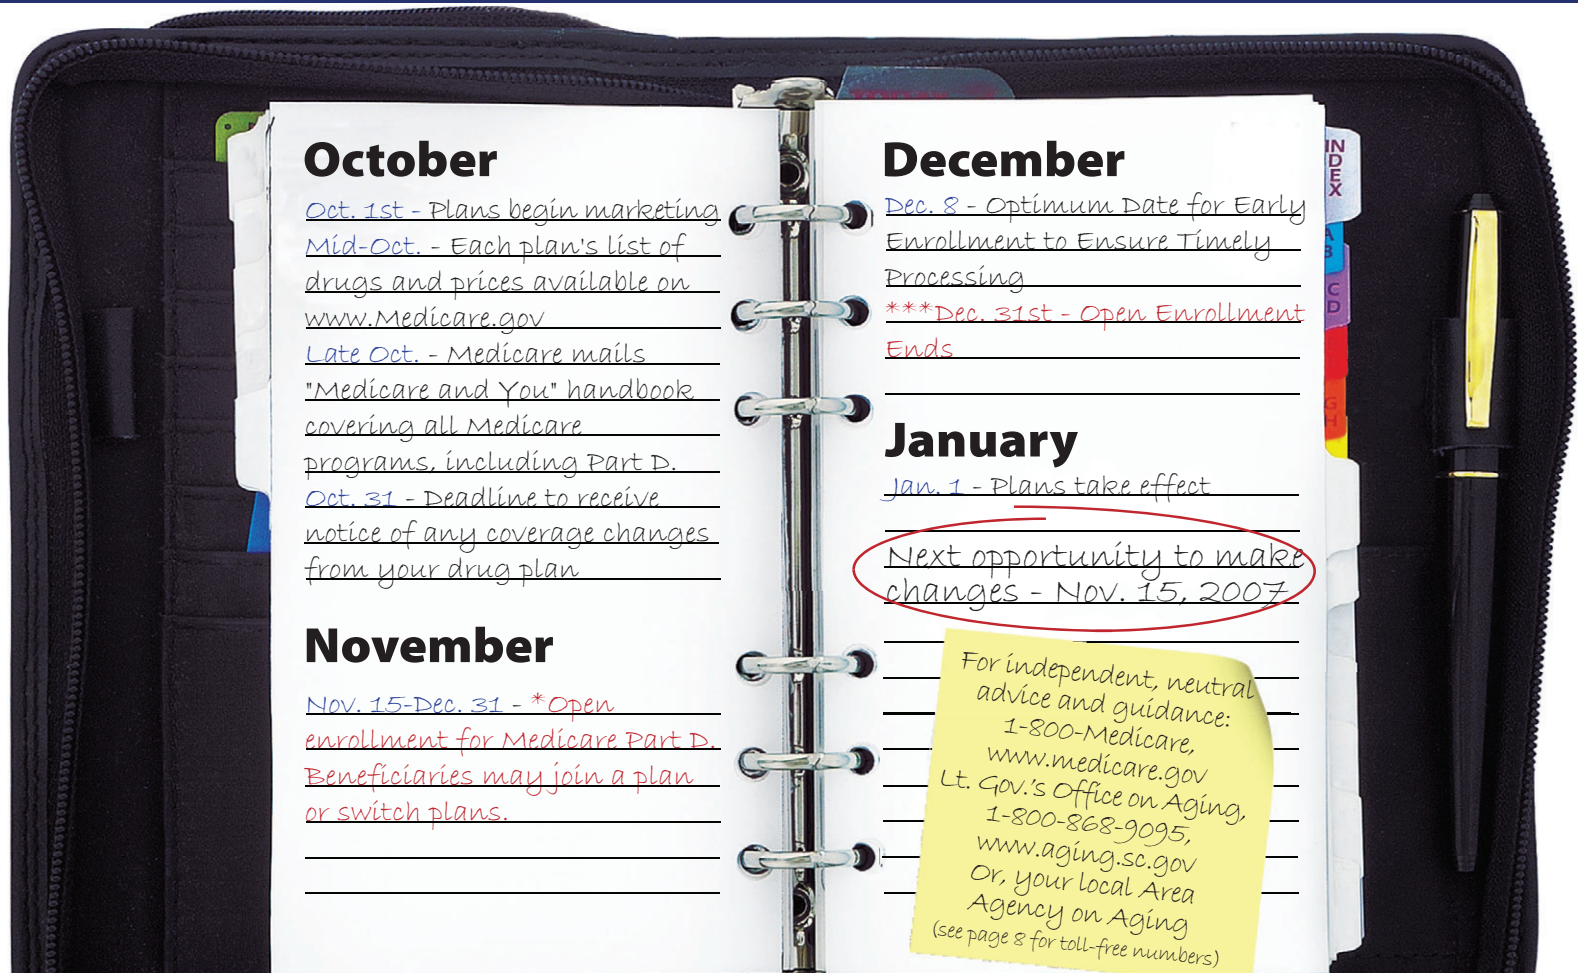 October
Oct. 1st - Plans begin marketing
Mid-Oct. - Each plan's list of
drugs and prices available on
www.Medicare.gov
Late Oct. - Medicare mails
"Medicare and You" handbook
covering all Medicare
programs, including Part D.
Oct. 31 - Deadline to receive
notice of any coverage changes
from your drug plan
November
Nov. 15-Dec. 31 - *Open
enrollment for Medicare Part D.
Beneficiaries may join a plan
or switch plans.
December
Dec. 8 - Optimum Date for Early
Enrollment to Ensure Timely
Processing
***Dec. 31st - Open Enrollment
Ends
January
Jan. 1 - Plans take effect
Next opportunity to make
changes - Nov. 15, 2007
For independent, neutral
advice and guidance:
1-800-Medicare,
www.medicare.gov
Lt. Gov.'s Office on Aging,
1-800-868-9095,
www.aging.sc.gov
Or, your local Area
Agency on Aging
(see page 8 for toll-free numbers)
INDEX
A
B
C
D
G
H